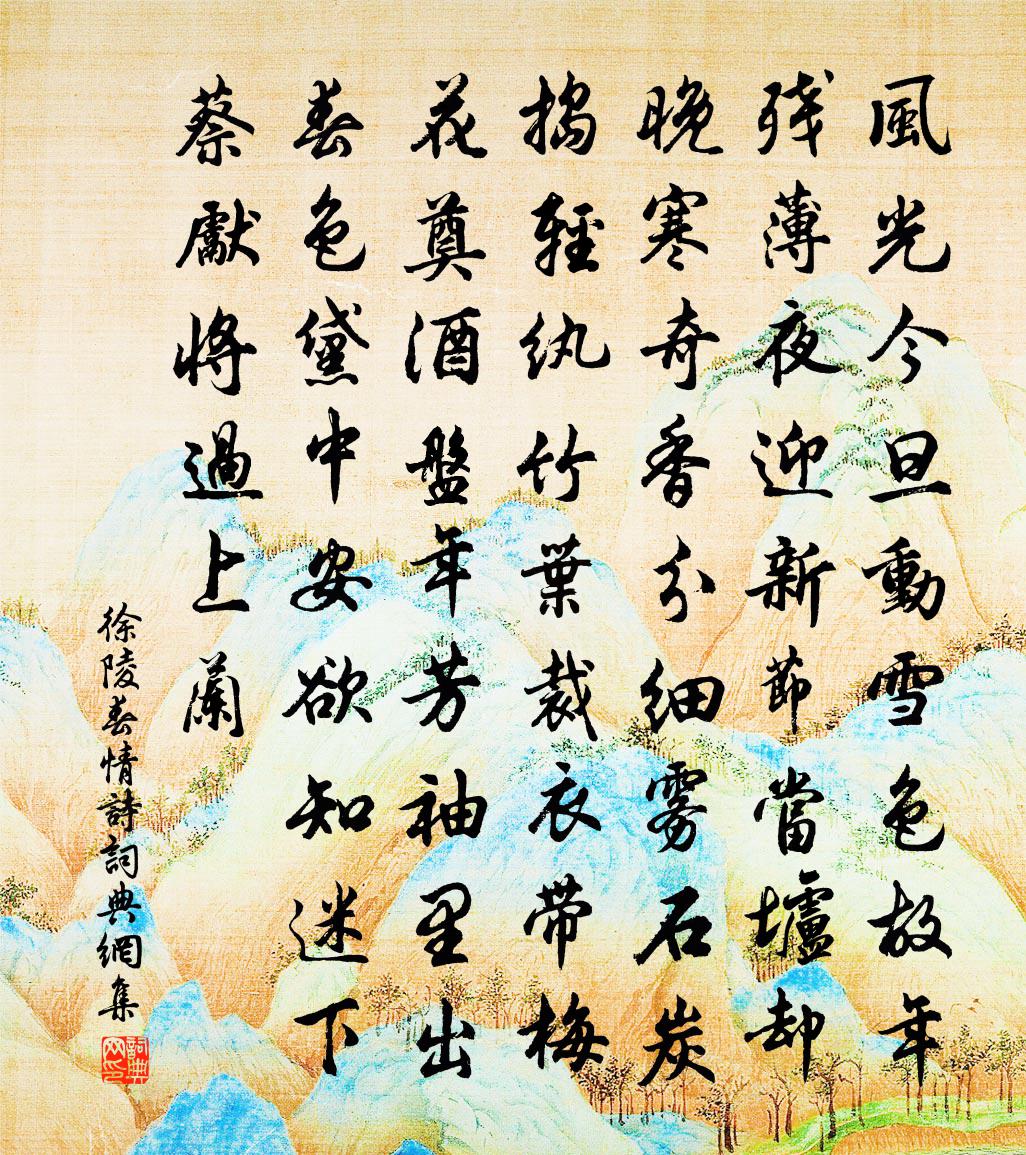 風光今旦動雪色故年
残薄夜迎新節當壚却
晚寒奇香分細雾石炭
搗輕紈竹葉裁衣带梅
花奠酒盤年芳袖里出
春色黛中安欲知迷下
蔡獻將過上蘭
徐陵春情詩詞典網集
詞典网印